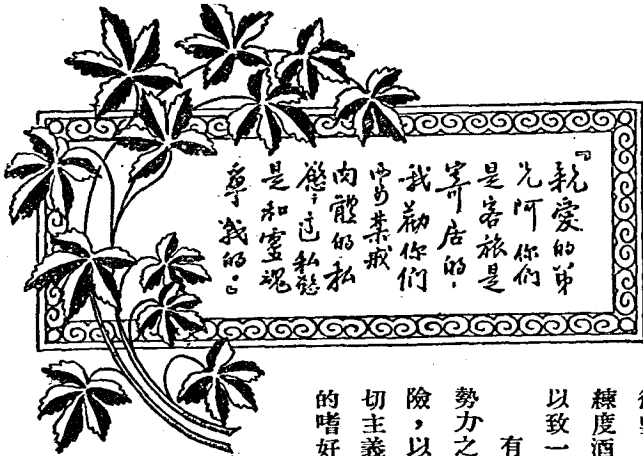 『親愛的弟
兄阿你們
是客旅是
寄居的，
我勸你們
要禁戒
肉體的私
慾；這私慾
是和靈魂
爭戰的。』
練度酒
以致一
有
勢力之
險，以
切主義
的嗜好